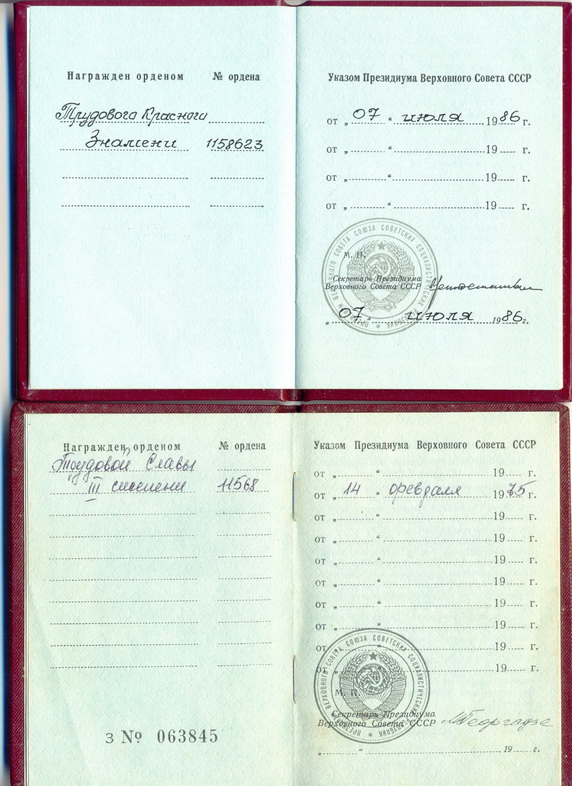 Награжден орденом № ордена
Трудового Красного
Знамени 1158623
Указом Президиума Верховного Совета СССР
от „ 07 " июля 1986 г.
от „ " 19 г.
от „ " 19 г.
от „ " 19 г.
М. П.
Секретарь Президиума
Верховного Совета СССР
„ 07 июля 1986 г.
Награжден орденом № ордена
Трудовой Славы
III степени 11568
З № 063845
Указом Президиума Верховного Совета СССР
от „ " 19 г.
от „ 14 " февраля 1975 г.
от „ " 19 г.
от „ " 19 г.
от „ " 19 г.
от „ " 19 г.
от „ " 19 г.
от „ " 19 г.
от „ " 19 г.
от „ " 19 г.
М. П.
Секретарь Президиума
Верховного Совета СССР МГеоргадзе
„ " 19 г.